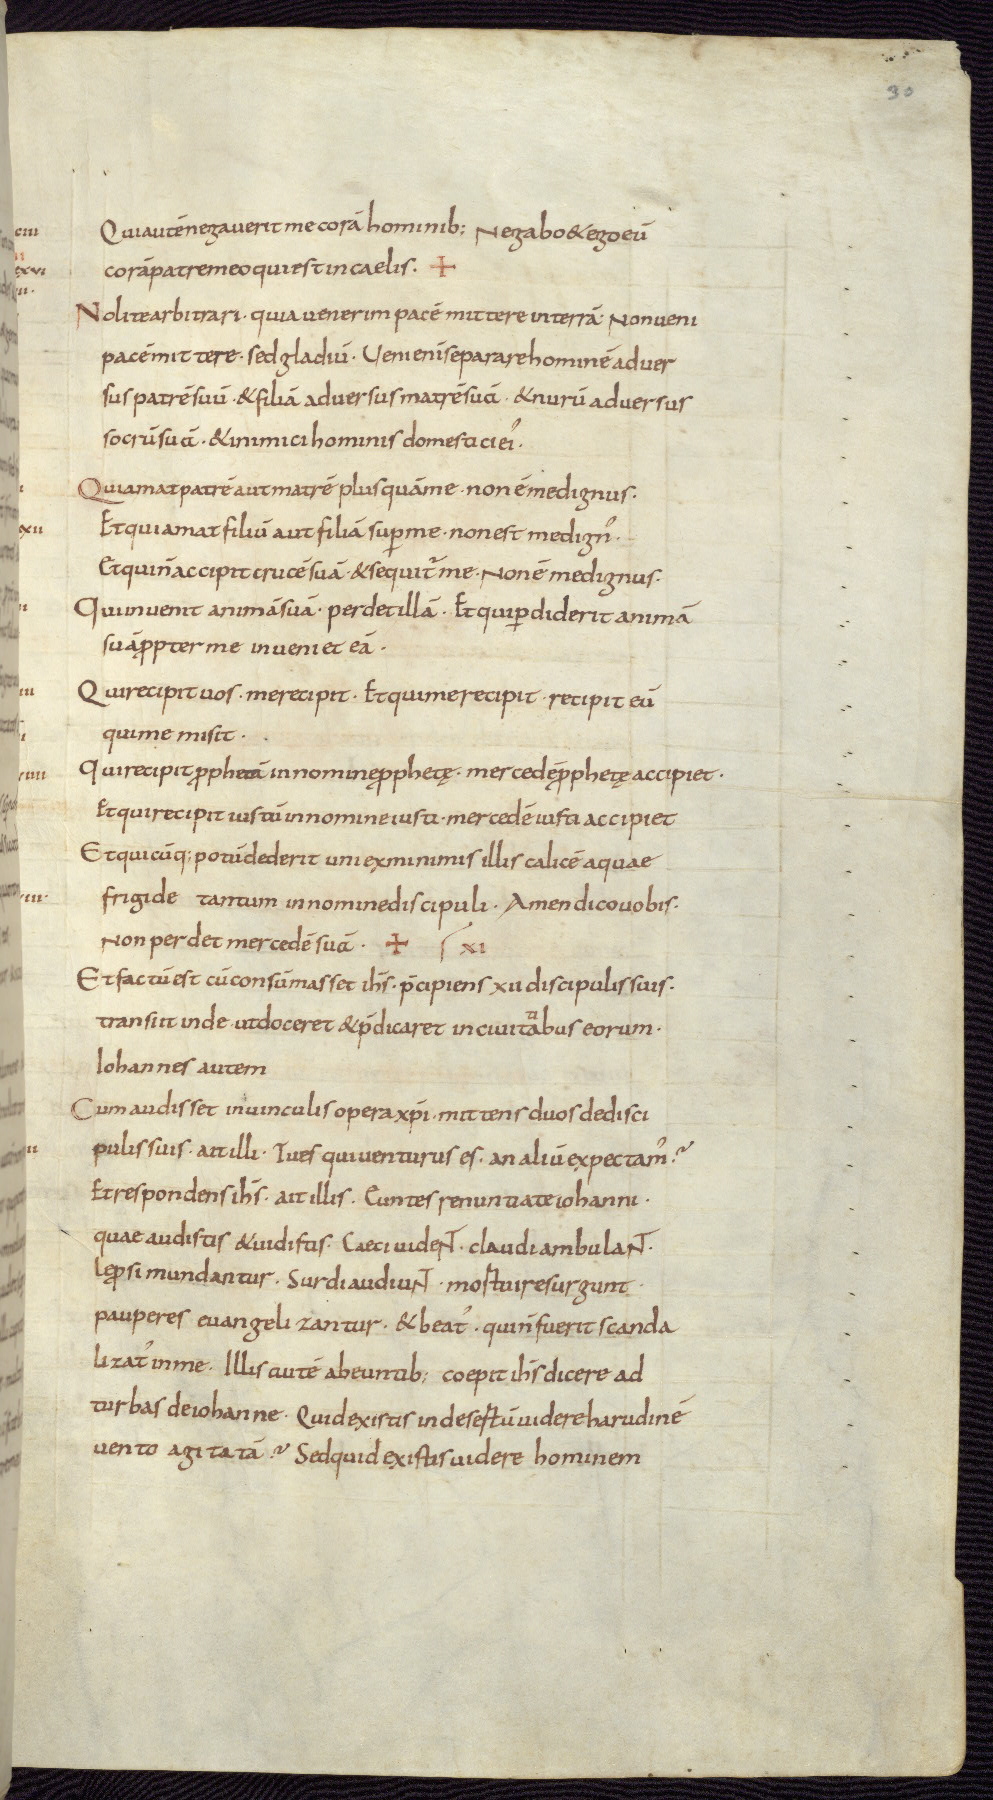 30
Quiautēnegaverit me corā hominib; Negabo&egoeū
corāpatremeoquiestincaelis. +
Nolitearbitrari. quia venerim pacē mittere interrā. Nonveni
pacēmittere. sedgladiū. Veni enī separarehominē adver
sus patrēsuū. &filiā adversus matrēsuā. &nurū adversus
socrūsuā. &inimici hominis domestici ei᾽.
Quiamatpatrē autmatrē plusquāme. non ē medignus.
Etquiamatfiliū aut filiā suꝑme. nonest medign᾽.
Etquin̄accipitcrucēsuā. &sequit᾽ me. Nonē medignus.
Quiinvenit animāsuā. perdetillā. Et quiꝑdiderit animā
suāꝓpter me inveniet eā.
Quirecipit uos. merecipit. Etquimerecipit. recipit eū
quime misit.
Quirecipitꝓphetā innomineꝓphetę. mercedēꝓphetę accipiet.
Etquirecipit iustū innomine iusti. mercedē iusti accipiet
Etquicūq; potūdederit uni exminimis illis calicē aquae
frigide tantum innominediscipuli. Amendicouobis.
Non perdet mercedē suā. + XI
Etfactūest cūconsūmasset ihs̄. p̄cipiens xii discipulis suis.
transiit inde utdoceret &p̄dicaret in civitatibus eorum.
Iohannes autem
Cum audisset invinculis opera xp̄i. mittens duos dedisci
pulis suis. ait illi. Tues quiventurus es. an aliū expectam᾽?
Etrespondens ihs̄. ait illis. Euntes renuntiate iohanni.
quae audistis &vidistis. Caeci videNT. claudi ambulaNT.
leprosi mundantur. Surdi audiuNT. mortui resurgunt.
pauperes evangelizantur. &beat᾽. quin̄fuerit scanda
lizat᾽ inme. Illis autē abeuntib; coepit ihs̄ dicere ad
turbas deiohanne. Quid existis indesertū videre harudinē
vento agitatā? Sedquid existis videre hominem